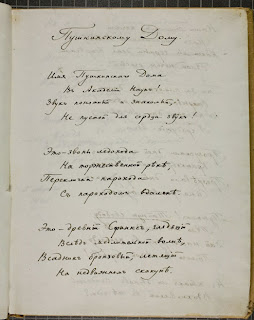 Пушкинскому Дому
Имя Пушкинскаго Дома
Въ Академіи Наукъ!
Звукъ понятный и знакомый,
Не пустой для сердца звукъ!
Это—звоны ледохода
На торжественной рѣкѣ,
Перекличка парохода
Съ пароходомъ вдалекѣ.
Это—древній Сфинксъ, глядящій
Вслѣдъ медлительной волнѣ,
Всадникъ бронзовый, летящій
На недвижномъ скакунѣ.